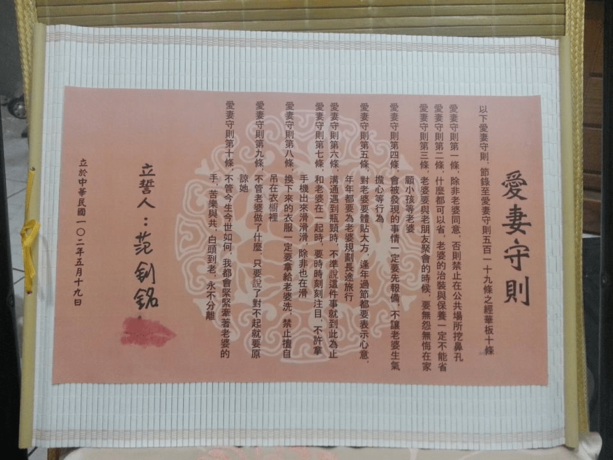 愛妻守則
以下愛妻守則，節錄至愛妻守則五百一十九條之經華板十條
愛妻守則第一條 除非老婆同意，否則禁止在公共場所挖鼻孔
愛妻守則第二條 什麼都可以省，老婆的治裝與保養一定不能省
愛妻守則第三條 老婆要與老朋友聚會的時候，要無怨無悔在家
顧小孩等老婆
愛妻守則第四條 會被發現的事情一定要先報備，不讓老婆生氣
擔心等行為
愛妻守則第五條 對老婆要體貼大方，逢年過節都要表示心意，
年年都要為老婆規劃長途旅行
愛妻守則第六條 溝通遇到瓶頸時，不準說這件事就到此為止
愛妻守則第七條 和老婆在一起時，要時時刻刻注目，不許拿
手機出來滑滑滑，除非也在滑
愛妻守則第八條 換下來的衣服一定要拿給老婆洗，禁止擅自
吊在衣櫥裡
愛妻守則第九條 不管老婆做了什麼，只要說了對不起就要原
諒她
愛妻守則第十條 不管今生今世如何，我都會緊緊牽著老婆的
手，苦樂與共，白頭到老，永不分離
立誓人：范釗銘
立於中華民國一〇二年五月十九日